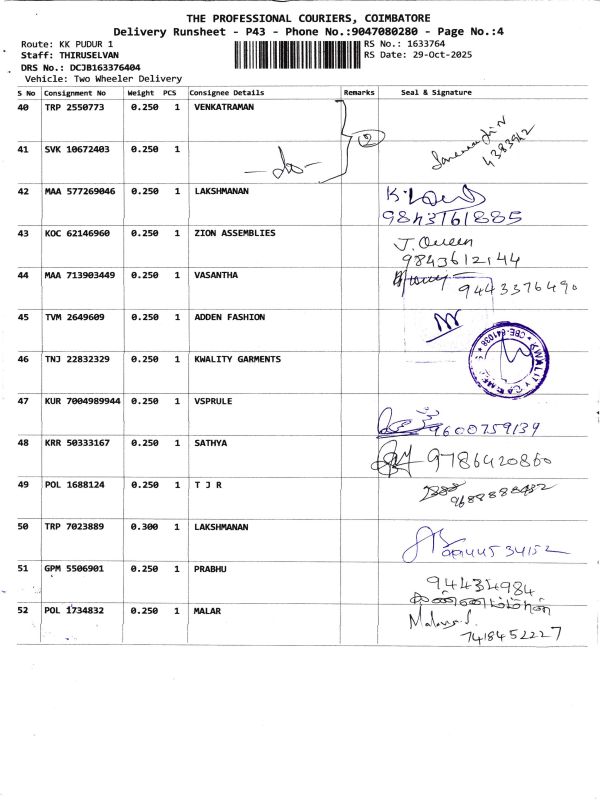 THE PROFESSIONAL COURIERS, COIMBATORE
Delivery Runsheet - P43 - Phone No.:9047080280 - Page No.:4
Route: KK PUDUR 1 RS No.: 1633764
Staff: THIRUSELVAN RS Date: 29-Oct-2025
DRS No.: DCJB163376404
Vehicle: Two Wheeler Delivery
S No Consignment No Weight PCS Consignee Details Remarks Seal & Signature
40 TRP 2550773 0.250 1 VENKATRAMAN
41 SVK 10672403 0.250 1 -do- 4383942
42 MAA 577269046 0.250 1 LAKSHMANAN
9843161885
43 KOC 62146960 0.250 1 ZION ASSEMBLIES J. Queen
9843612144
44 MAA 713903449 0.250 1 VASANTHA 9443376490
45 TVM 2649609 0.250 1 ADDEN FASHION
46 TNJ 22832329 0.250 1 KWALITY GARMENTS
47 KUR 7004989944 0.250 1 VSPRULE
9600759139
48 KRR 50333167 0.250 1 SATHYA 9786420860
49 POL 1688124 0.250 1 T J R
50 TRP 7023889 0.300 1 LAKSHMANAN
51 GPM 5506901 0.250 1 PRABHU 94434984
52 POL 1734832 0.250 1 MALAR
7418452227